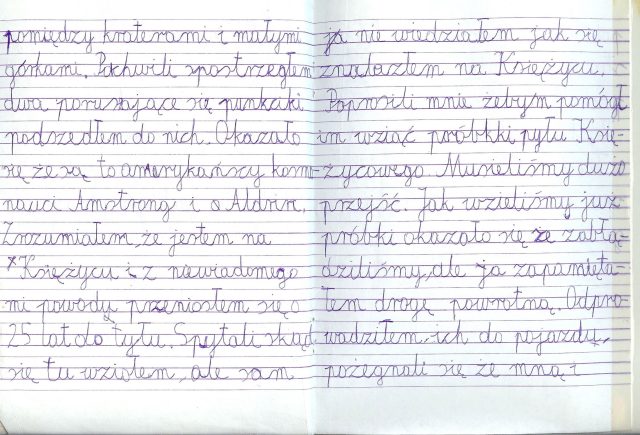 pomiędzy kraterami i małymi
górkami. Pochwili spostrzegłem
dwa poruszające się punkciki
podszedłem do nich. Okazało
się że są to amerykańscy kosmo-
nauci Amstrong i Aldrin.
Zrozumiałem że jestem na
*Księżycu i z niewiadomego
mi powodu przeniosłem się o
25 lat do tyłu. Spytali skąd
się tu wziołem, ale sam
ja nie wiedziałem jak się
znalazłem na Księżycu.
Poprosili mnie żebym pomógł
im wziąć próbkki pyłu Księ-
życowego Musieliśmy dużo
przejść. Jak wzieliśmy już
próbki okazało się że zabłą-
dziliśmy, ale ja zapamięta-
łem drogę powrotną. Odpro-
wadziłem ich do pojazdu,
pożegnali się że mną i